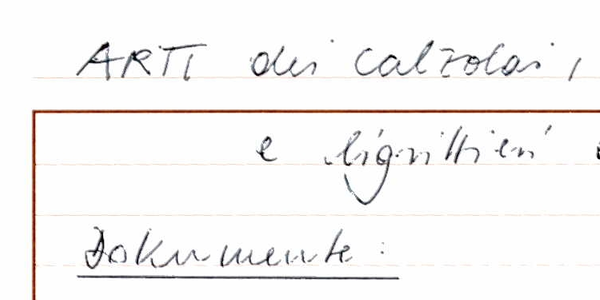 ARTI dei calzolai,
e rigattieri
Dokumente: